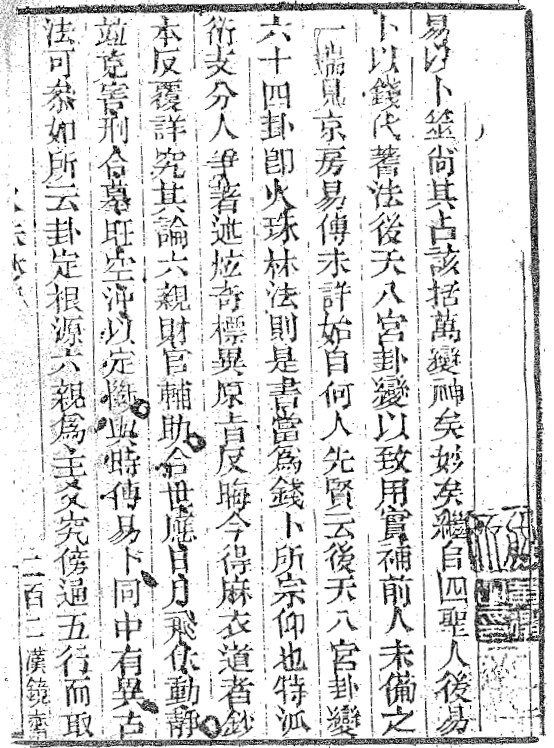 易以卜筮尚其占該括萬變神矣妙矣繼自四聖人後易
卜以錢代蓍法後天八宮卦變以致用實補前人未備之
一端見京房易傳未詳始自何人先賢云後天八宮卦變
六十四卦即火珠林法則是書當爲錢卜所宗仰也特派
衍支分人爭著述炫奇標異原旨反晦今得麻衣道者鈔
本反覆詳究其論六親財官輔助合世應日月飛伏動靜
並克害刑合墓旺空沖以定斷與時傳易卜同中有異古
法可參如所云卦定根源六親爲主爻究傍通五行而取
二百二漢鏡齋